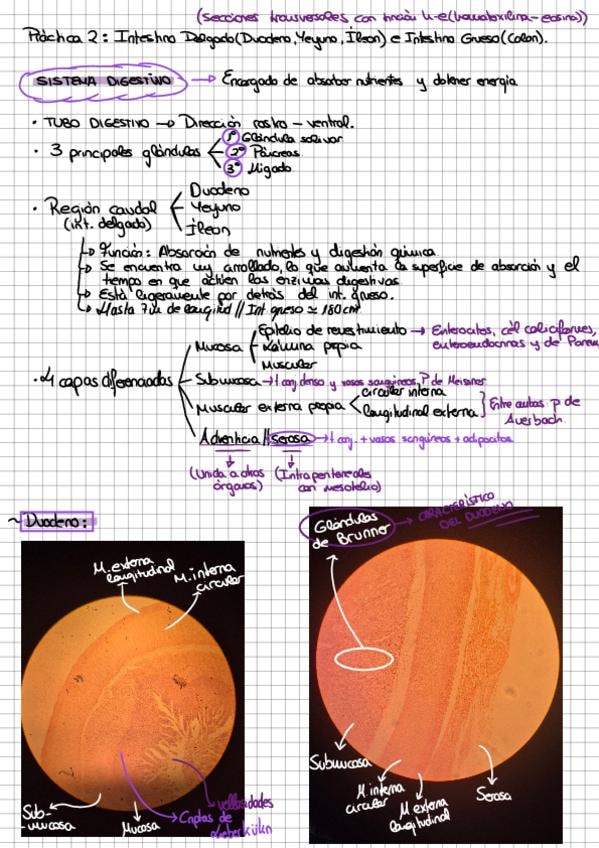 (secciones transversales con tinción H-E (hematoxilina - eosina))
Práctica 2: Intestino Delgado (Duodeno, Yeyuno, Íleon) e Intestino Grueso (Colon).
SISTEMA DIGESTIVO → Encargado de absorber nutrientes y obtener energía
· TUBO DIGESTIVO → Dirección rostro - ventral.
· 3 principales glándulas
1º Glándula salivar
2º Páncreas
3º Hígado
· Región caudal (int. delgado)
Duodeno
Yeyuno
Íleon
↳ Función: Absorción de nutrientes y digestión química
↳ Se encuentra muy arrollado, lo que aumenta la superficie de absorción y el
tiempo en que actúen las enzimas digestivas
↳ Está ligeramente por detrás del int. grueso.
↳ Hasta 7m de longitud // Int grueso ≃ 180cm
· 4 capas diferenciadas
Mucosa
Epitelio de revestimiento → Enterocitos, cél caliciformes, enteroendocrinas y de Panet
Lámina propia
Muscular
Submucosa → t conj. denso y vasos sanguíneos, P de Meissner
Muscular externa propia
circular interna
longitudinal externa
Entre ambas p de Auerbach
Adventicia // Serosa → t conj. + vasos sanguíneos + adipocitos
(Unida a otros órganos)
(Intraperitoneales con mesotelio)
~ Duodeno:
M. externa longitudinal
M. interna circular
Sub-mucosa
Mucosa
Criptas de Lieberkühn
vellosidades
Glándulas de Brunner → CARACTERÍSTICO DEL DUODENO
Submucosa
M. interna circular
M externa longitudinal
Serosa